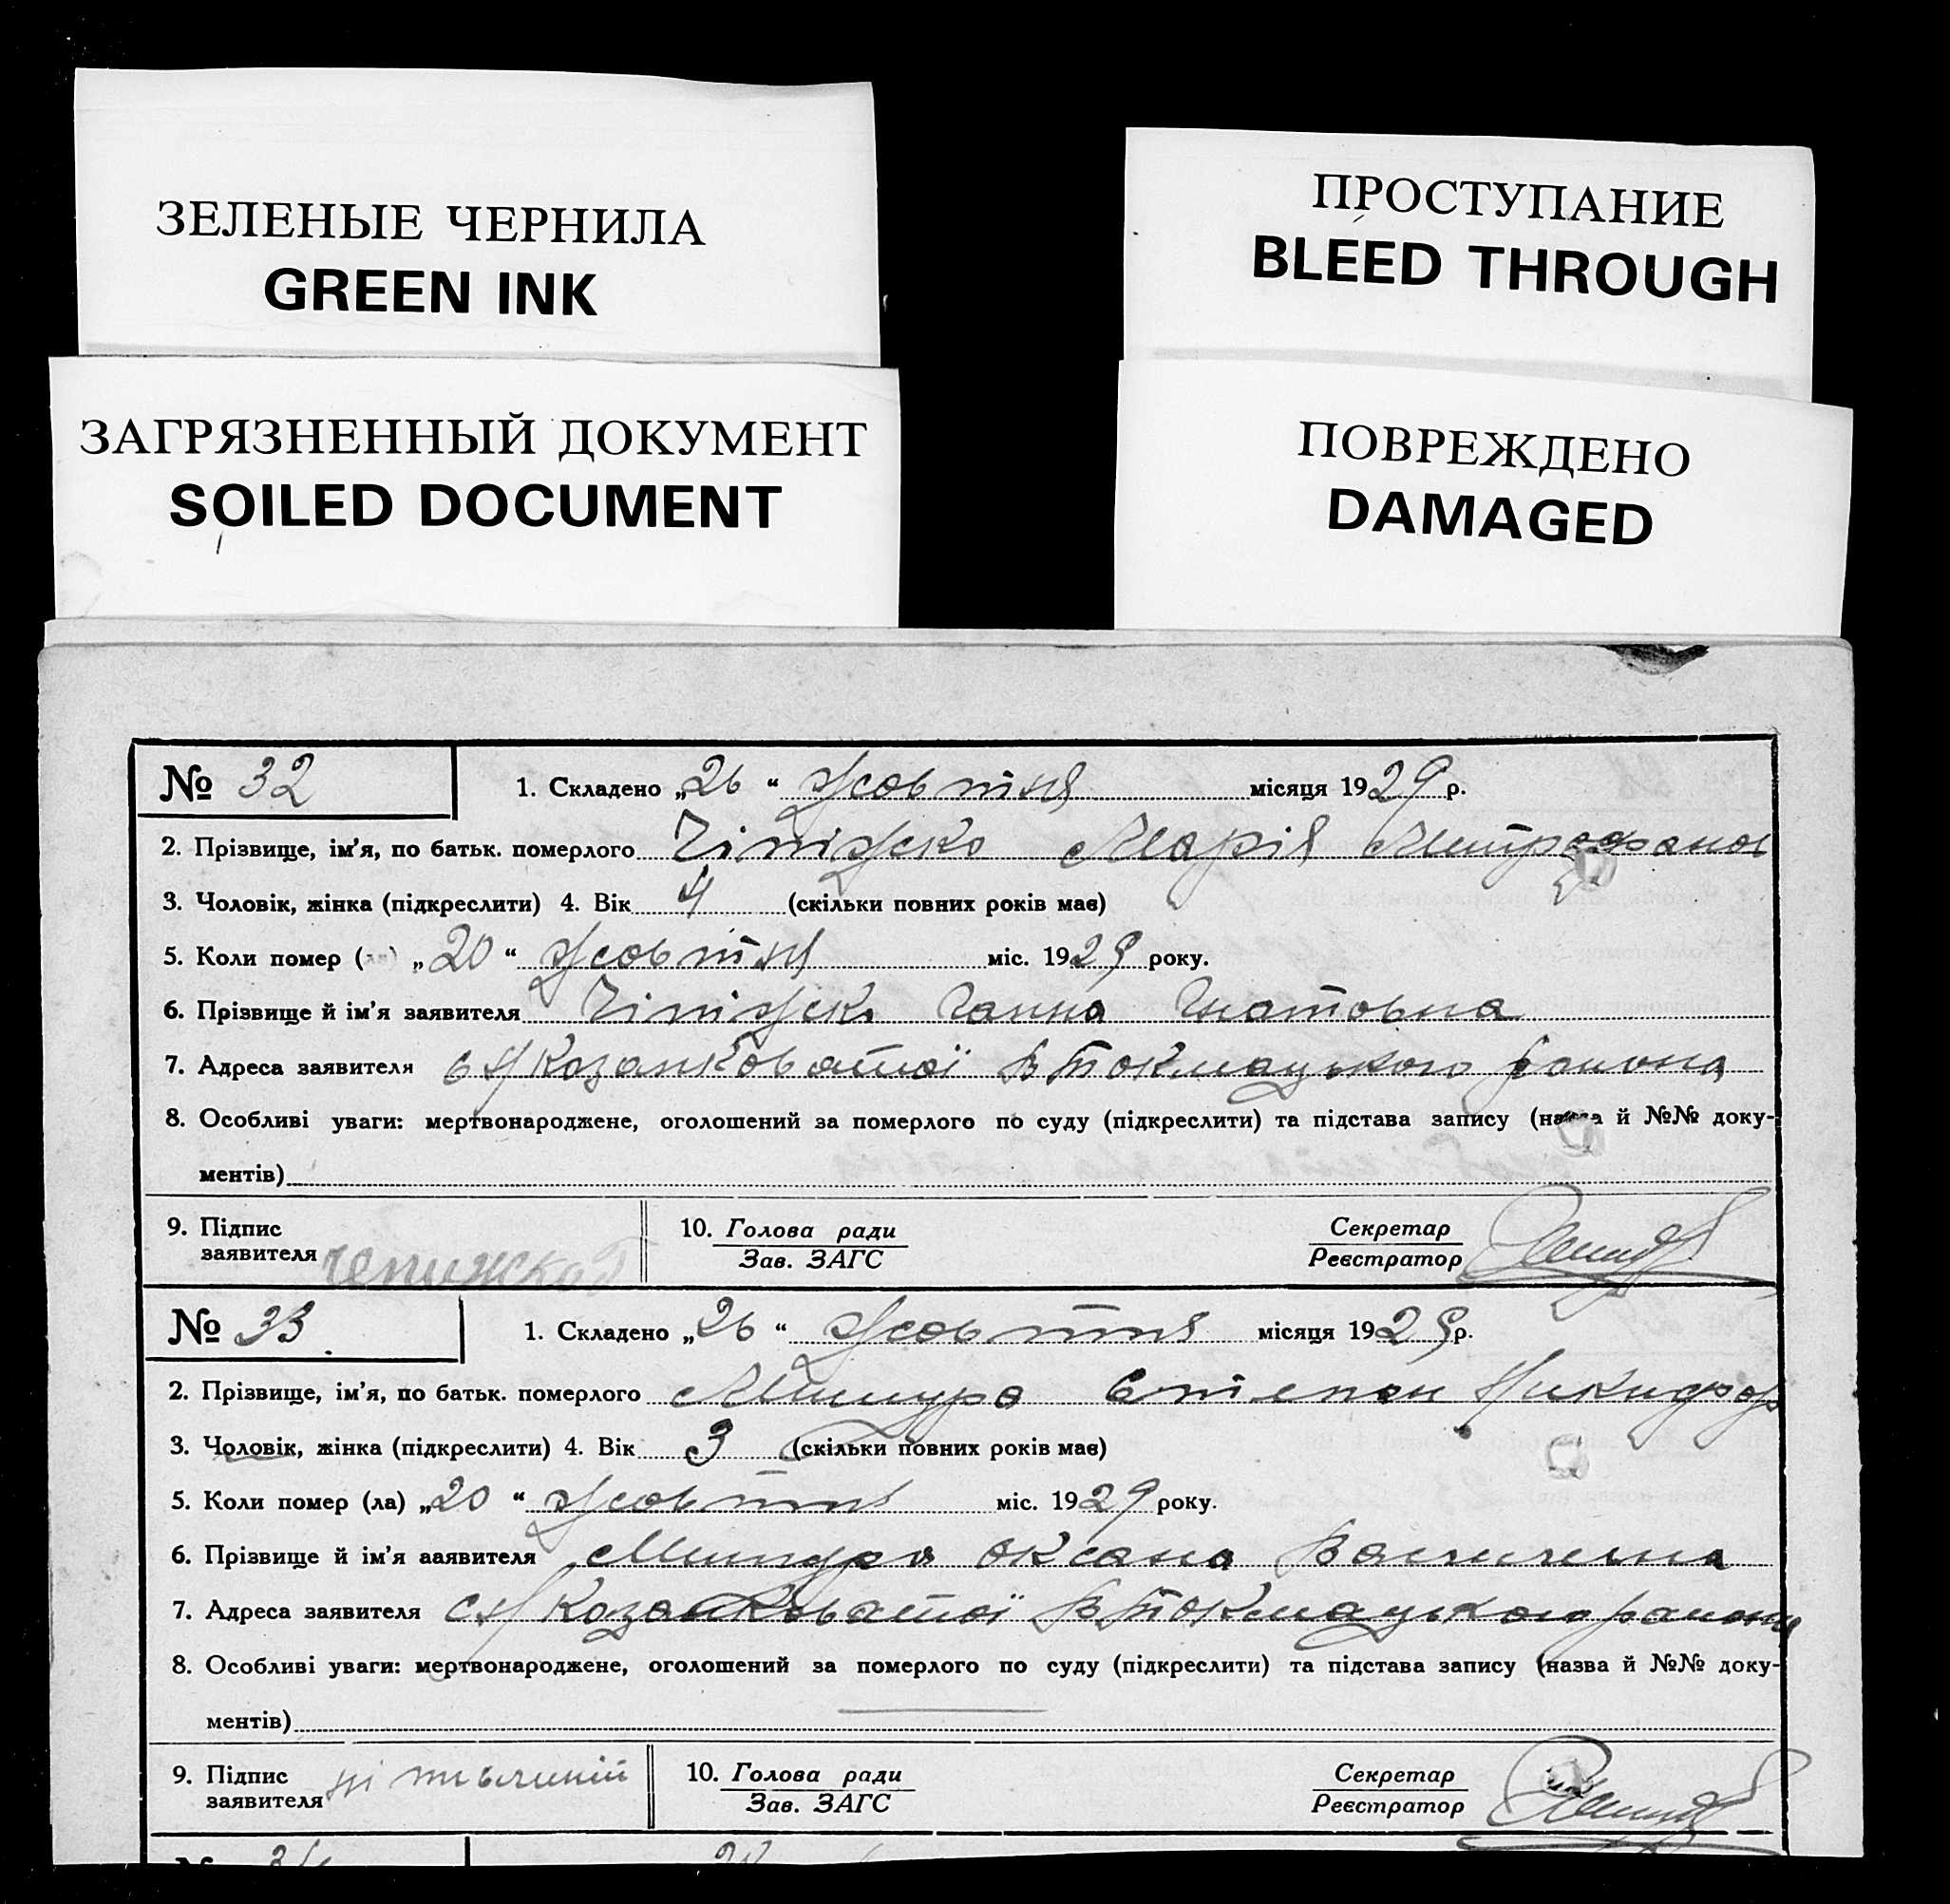 ЗЕЛЕНЫЕ ЧЕРНИЛА
GREEN INK
ПРОСТУПАНИЕ
BLEED THROUGH
ЗАГРЯЗНЕННЫЙ ДОКУМЕНТ
SOILED DOCUMENT
ПОВРЕЖДЕНО
DAMAGED
№ 32
1. Складено „26“ Жовтня місяця 1929 р.
2. Прізвище, ім'я, по батьк. померлого Чіпіжско Марія Митрофанов
3. Чоловік, жінка (підкреслити) 4. Вік 4 (скільки повних років має)
5. Коли помер (ла) „20“ Жовтня міс. 1929 року.
6. Прізвище й ім'я заявителя Чіпіжско Ганна Гнатовна
7. Адреса заявителя с Козанковатої В Токмацького района
8. Особливі уваги: мертвонароджене, оголошений за померлого по суду (підкреслити) та підстава запису (назва й №№ доку-
ментів)
9. Підпис
заявителя
10. Голова ради
Зав. ЗАГС
Секретар
Реєстратор
№ 33
1. Складено „26“ Жовтня місяця 1929 р.
2. Прізвище, ім'я, по батьк. померлого Мишура Степан Никифор
3. Чоловік, жінка (підкреслити) 4. Вік 3 (скільки повних років має)
5. Коли помер (ла) „20“ Жовтня міс. 1929 року.
6. Прізвище й ім'я заявителя Мишура Оксана
7. Адреса заявителя с Козанковатої В Токмацького района
8. Особливі уваги: мертвонароджене, оголошений за померлого по суду (підкреслити) та підстава запису (назва й №№ доку-
ментів)
9. Підпис
заявителя
10. Голова ради
Зав. ЗАГС
Секретар
Реєстратор